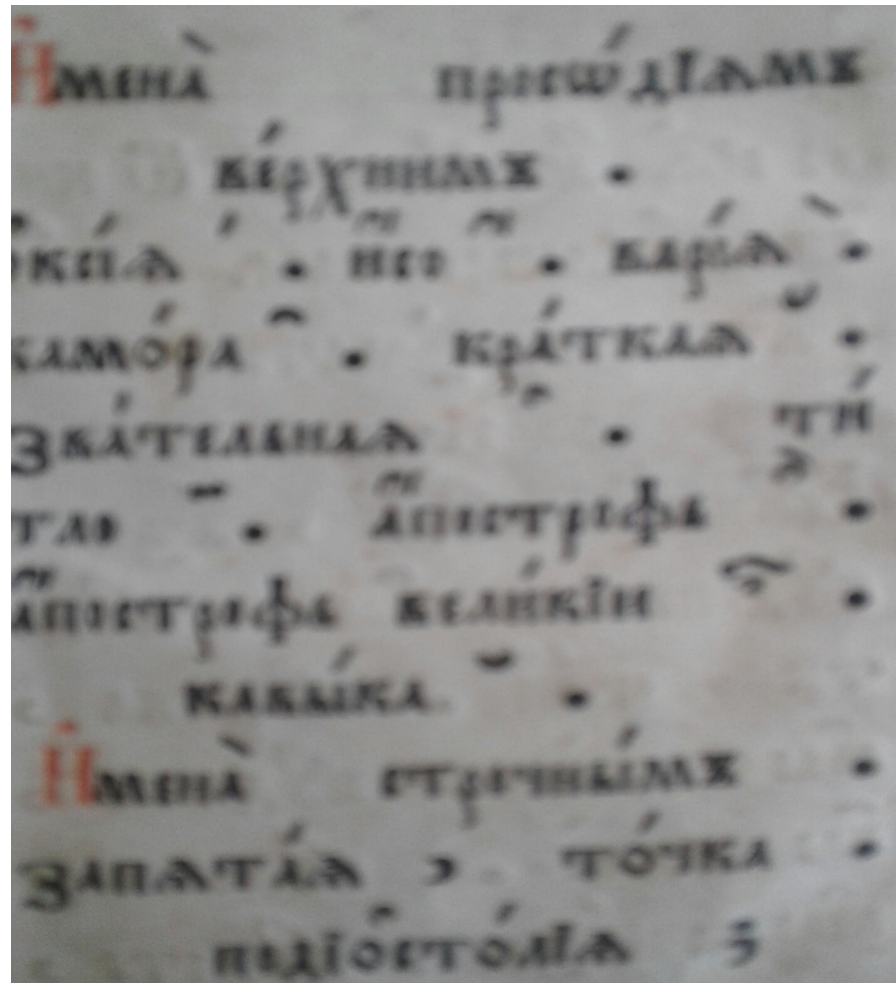 И҆мена̀ просѡ́дїѧмъ
ве́рхнимъ .
ѻ҆ѯі́ѧ ́ . и҆́со ҆́ . варі́ѧ ̀ .
камо́ра ̑ . кра́ткаѧ ̆ .
зва́тельнаѧ ҆ . ти́
тло ҃ . а҆́построфь .
а҆́построфь вели́кїи .
кавы́ка ̆ .
И҆мена̀ строчны́мъ .
запѧта́ѧ , то́чка .
подїо҆сто́лїѧ